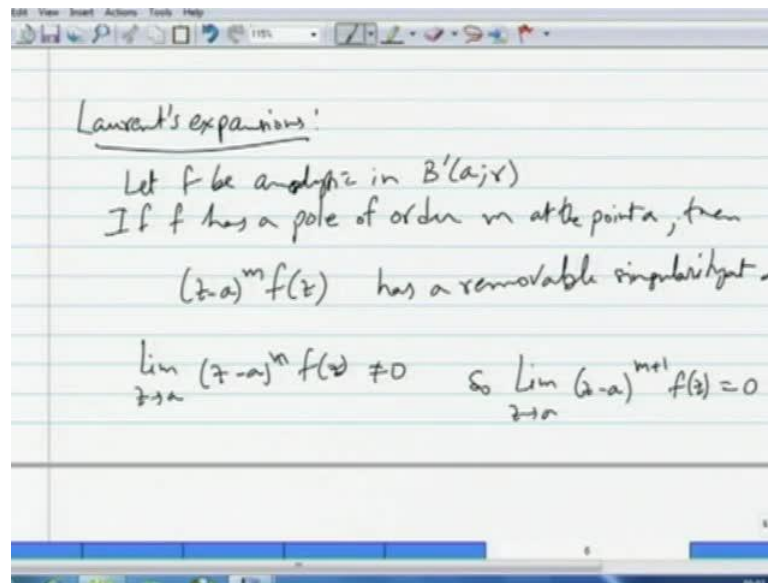 Edit View Insert Actions Tools Help
115%
Laurent's expansions:
Let f be analytic in B'(a;r)
If f has a pole of order m at the point a, then
(z-a)^m f(z) has a removable singularity at a
lim z→a (z-a)^m f(z) ≠ 0 So Lim z→a (z-a)^{m+1} f(z) = 0
6